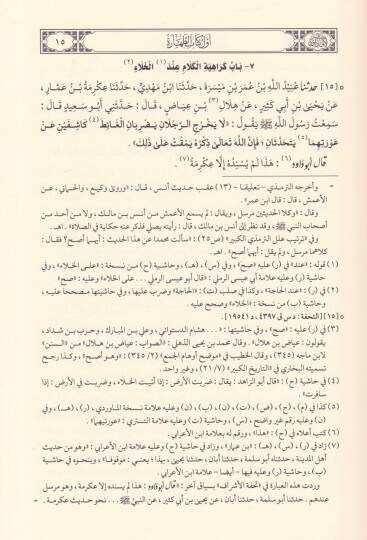 أول كتاب الطهارة
١٥
٧- باب كراهية الكلام عند (١) الخلاء (٢)
[١٥] حدثنا عبيد الله بن عمر بن ميسرة، حدثنا ابن مهدي، حدثنا عكرمة بن عمار،
عن يحيى بن أبي كثير، عن هلال (٣) بن عياض، قال: حدثني أبو سعيد قال:
سمعت رسول الله ﷺ يقول: «لا يخرج الرجلان يضربان الغائط (٤) كاشفين عن
عورتهما (٥) يتحدثان؛ فإن الله تعالى ذكره يمقت على ذلك».
قال أبو داود (٦): هذا لم يسنده إلا عكرمة (٧).
- وأخرجه الترمذي - تعليقا - (١٣) عقب حديث أنس، قال: «وروى وكيع، والحماني، عن
الأعمش، قال: قال ابن عمر».
وقال: «وكلا الحديثين مرسل، ويقال: لم يسمع الأعمش من أنس بن مالك، ولا من أحد من
أصحاب النبي ﷺ، وقد نظر إلى أنس بن مالك، قال: رأيته يصلي فذكر عنه حكاية في الصلاة». اهـ.
وفي «ترتيب علل الترمذي الكبير» (ص٢٥): «سألت محمدا عن هذا الحديث: أيهما أصح؟ فقال:
كلاهما مرسل، ولم يقل: أيهما أصح». اهـ.
(١) قوله: «عند» في (ر) عليه: «صح»، وفي (س)، (هـ)، وحاشية (ح) من نسخة: «على الخلاء»، وفي
حاشية (ر) وعليه علامة أبي عيسى الرملي: «قال أبو عيسى الرملي ... على الخلاء»، وعليه «صح».
(٢) في (ر): «عند الحاجة»، وكذا في صلب
وحاشية (ب) من نسخة: «الخلاء» وصحح عليه.
[١٥] [التحفة: د س ق ٤٣٩٧، ١٩٥٤١]
(٣) في (ح): «صح»، وفي حاشيتها: «... هشام الدستوائي، وعلي بن المبارك، وحرب بن شداد،
يقولون: عياض بن هلال». وقال محمد بن يحيى الذهلي: «الصواب: عياض بن هلال» من «السنن»
لابن ماجه (٣٤٥)، وقال الخطيب في «موضح أوهام الجمع» (٢/ ٣٤٥): «وهو أصح»، وكذا رجح
تسميته البخاري في «التاريخ الكبير» (٧/ ٢١)، وغير واحد.
(٤) في حاشية (ح): «قال أبو الزاهد: يقال: ضربت الأرض: إذا أتيت الخلاء، وضربت في الأرض: إذا
سافرت».
(٥) كذا في
(٦) كتب أعلاه في (ح): «هذا»، ورقم له بعلامة ابن الأعرابي.
(٧) زاد في (ر)، (س)، (ب): «ابن عمار»، وزاد في حاشية (ح) وعليه علامة ابن الأعرابي: «وهو من حديث
أهل المدينة، حدثنا أبو سلمة، حدثنا أبان، حدثنا يحيى، بهذا؛ يعني: موقوفا»، وبنحوه في حاشية
(ب)، وحاشية (ر) وعليه فيها - أيضا - علامة ابن الأعرابي.
وردت هذه العبارة في «تحفة الأشراف» بسياق آخر: «قال أبو داود: هذا لم يسنده إلا عكرمة، وهو مرسل
عندهم. حدثنا أبو سلمة، حدثنا أبان، عن يحيى بن أبي كثير، عن النبي ﷺ ... نحو حديث عكرمة. -